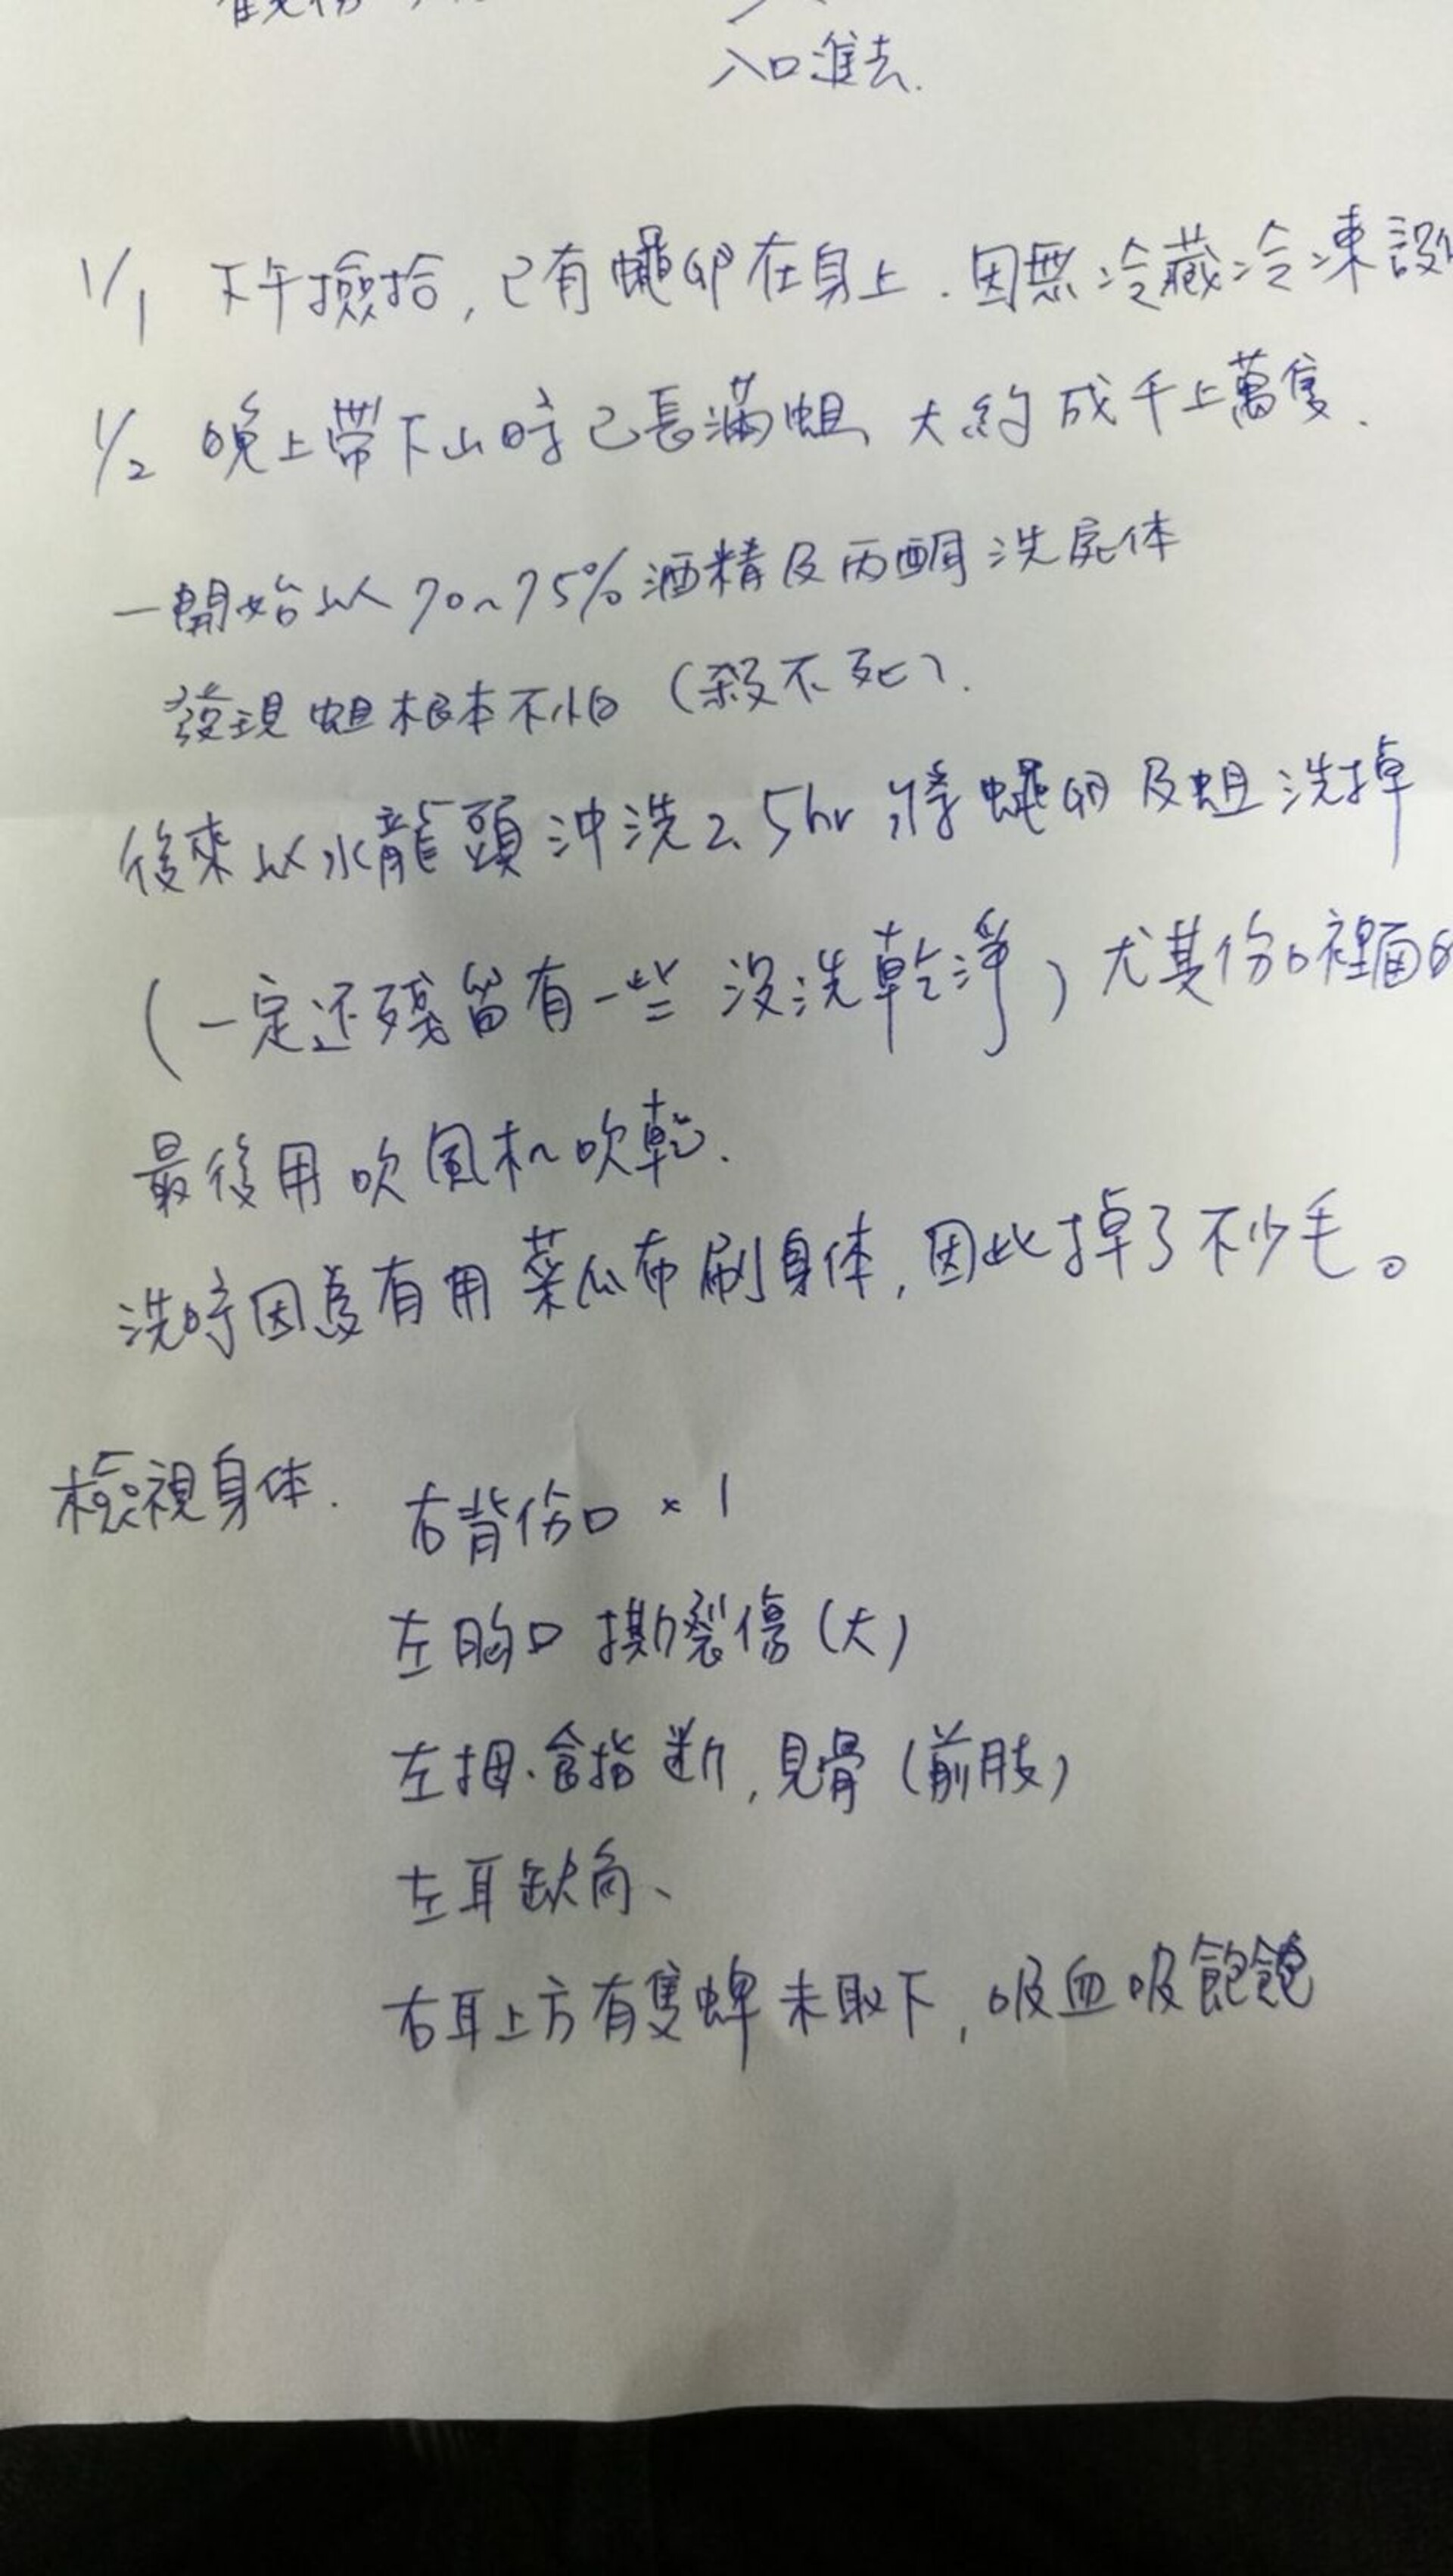 入口進去.
1/1 下午撿拾,已有蠅卵在身上.因無冷藏冷凍設
1/2 晚上帶下山時已長滿蛆、大約成千上萬隻.
一開始以70~75%酒精及丙酮洗屍体
發現蛆根本不怕(殺不死).
後來以水龍頭沖洗2.5hr 將蠅卵及蛆洗掉
(一定还殘留有一些 沒洗乾淨)尤其伤口裡面
最後用吹風机吹乾.
洗時因為有用菜瓜布刷身体,因此掉了不少毛。
檢視身体. 右背伤口 ×1
左胸口 撕裂傷(大)
左拇.食指断,見骨(前肢)
左耳缺角、
右耳上方有隻蜱未取下,吸血吸飽飽